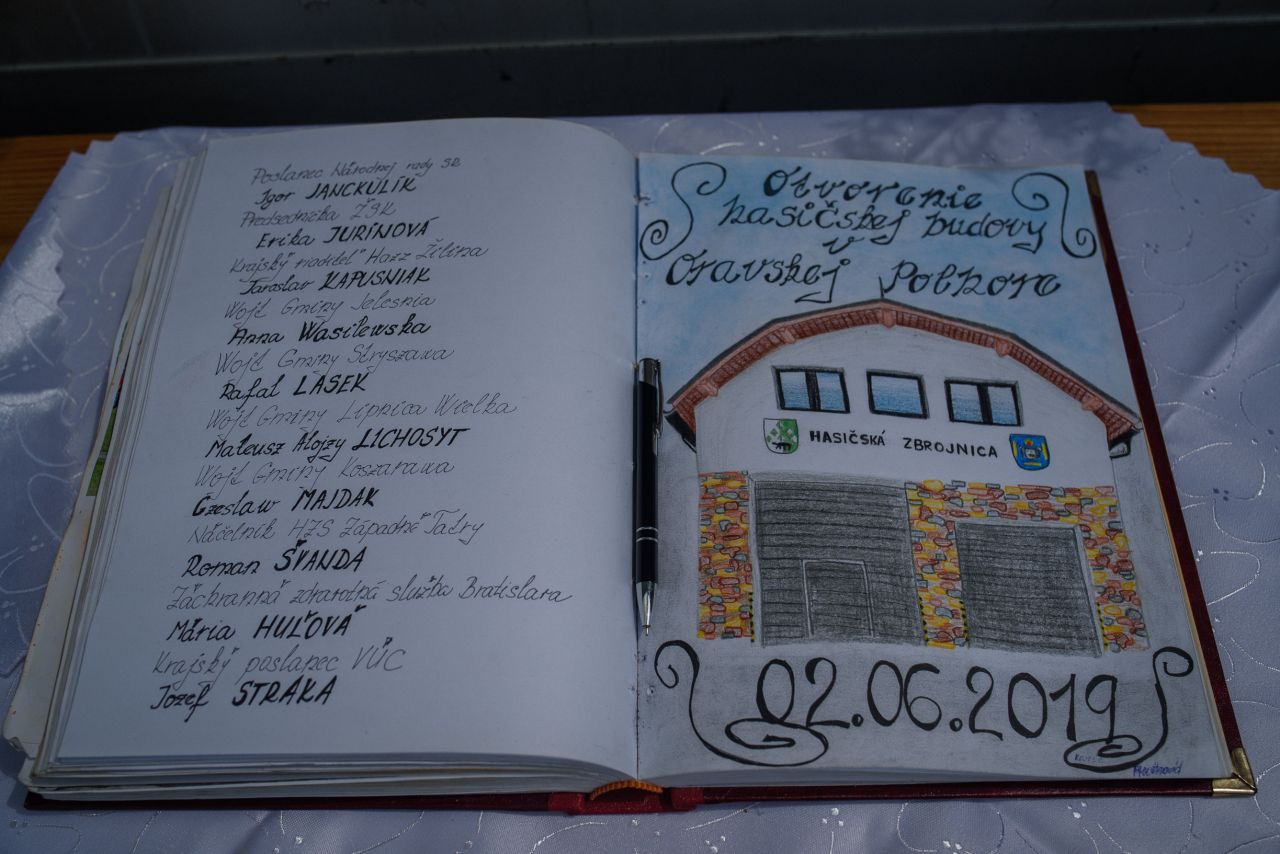 Poslanec Národnej rady SR
Igor JANCKULÍK
Predsedníčka ŽSK
Erika JURINOVÁ
Krajský riaditeľ HaZZ Žilina
Jaroslav KAPUSNIAK
Wojt Gminy Jelesnia
Anna Wasilewska
Wojt Gminy Stryszawa
Rafal LASEK
Wojt Gminy Lipnica Wielka
Mateusz Alojzy LICHOSYT
Wojt Gminy Koszarawa
Czeslaw MAJDAK
Náčelník HZS Západné Tatry
Roman ŠVANDA
Záchranná zdravotná služba Bratislava
Mária HUĽOVÁ
Krajský poslanec VÚC
Jozef STRAKA
Otvorenie
hasičskej budovy
v
Oravskej Polhore
HASIČSKÁ ZBROJNICA
02.06.2019